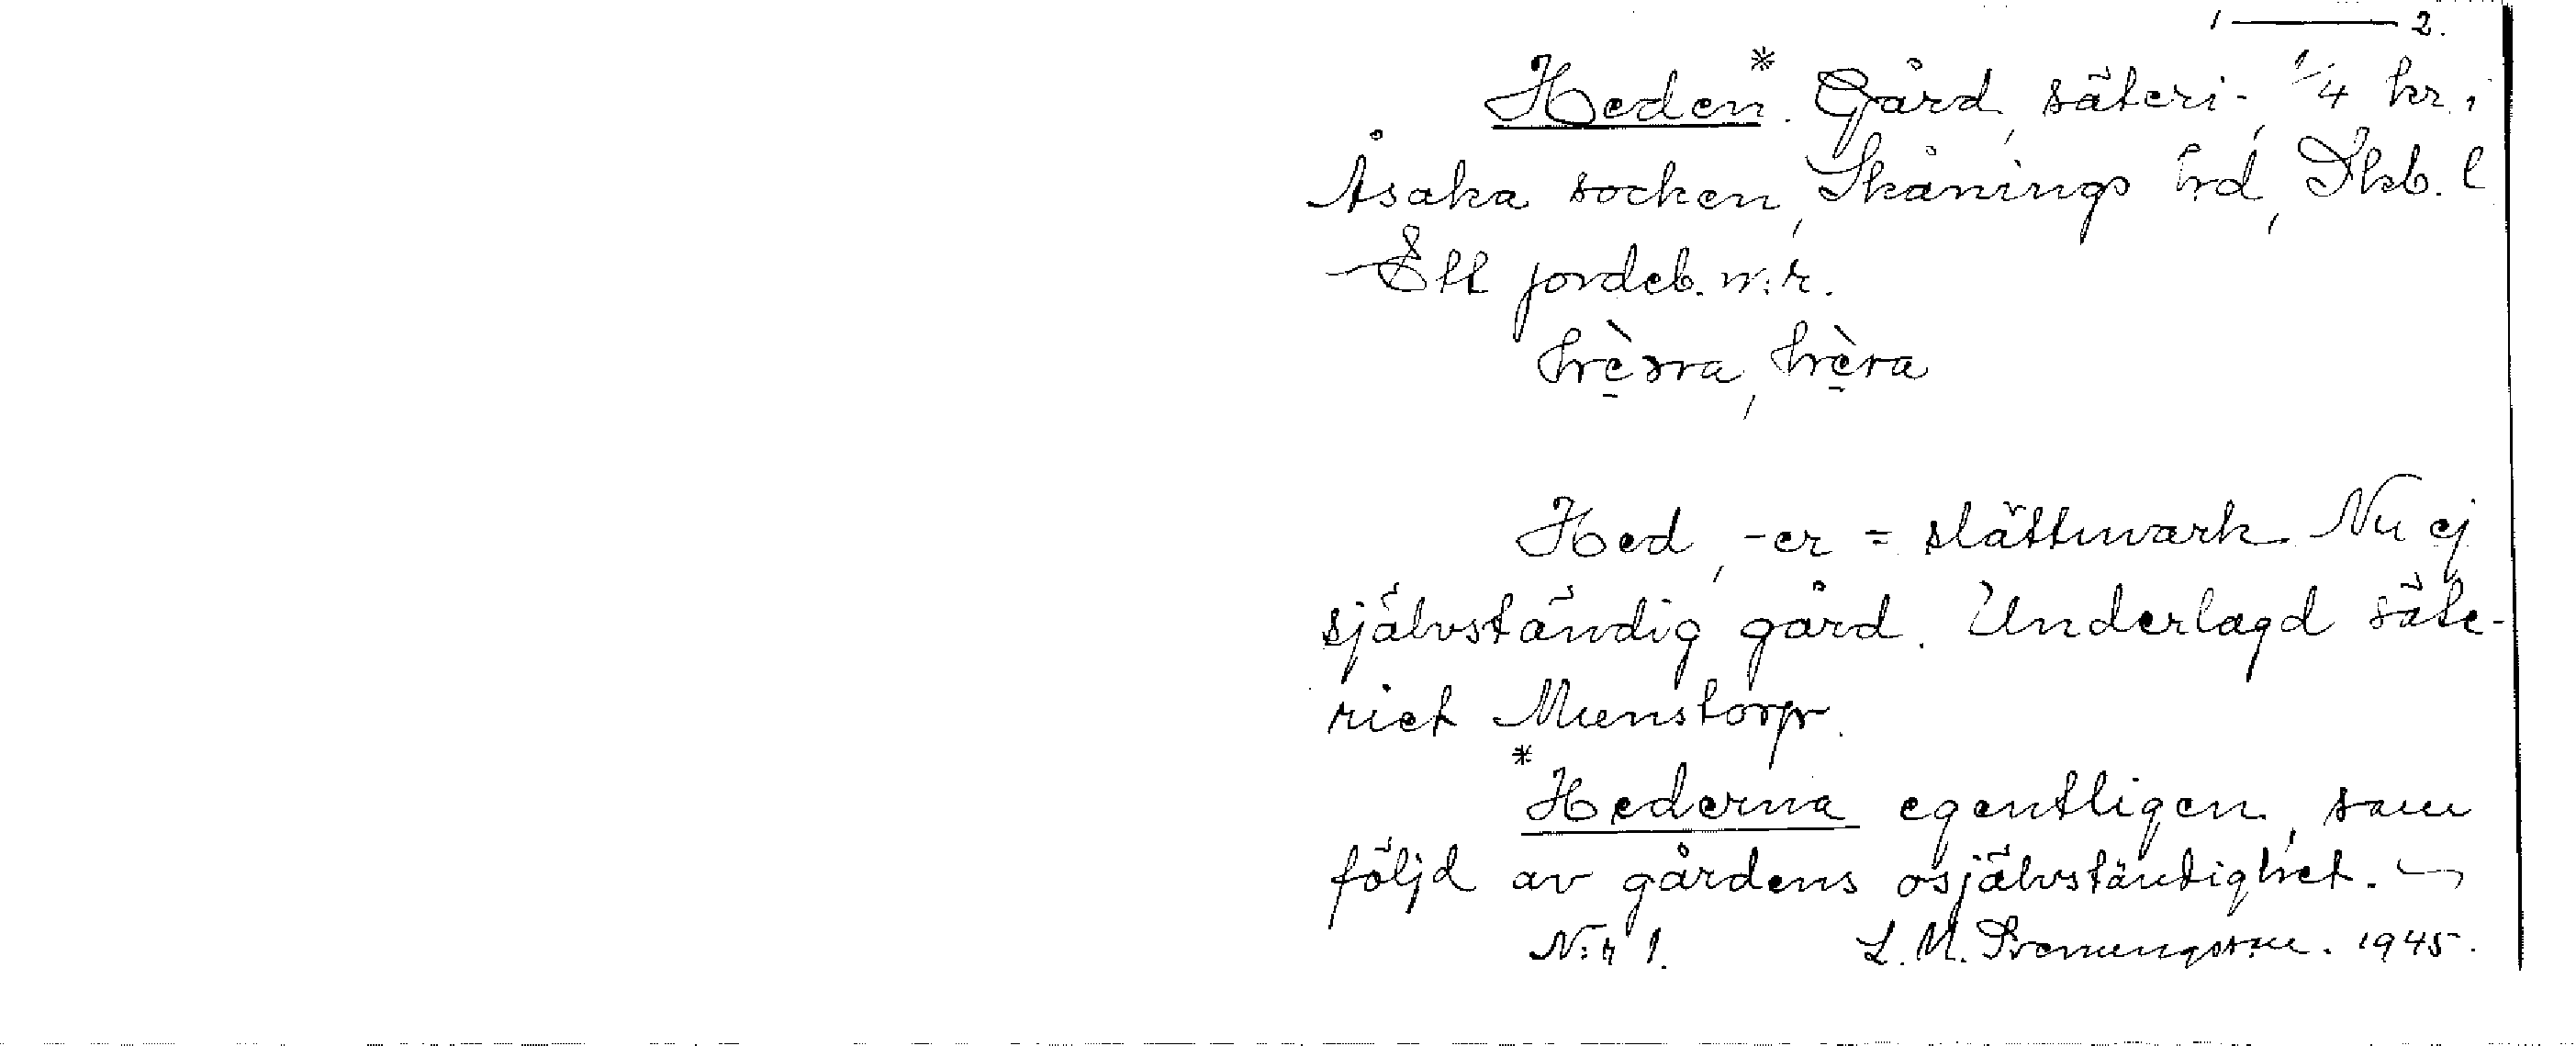 1 — 2.
Heden*. Gård, säteri-, 1/4 hr, i
Åsaka socken, Skånings hrd, Skb. l
Ett jordeb. n:r.
hèsra, hèra
Hed, -er = slättmark. Nu ej
självständig gård. Underlagd säte-
riet Munstorp.
*Hederna egentligen, som
följd av gårdens osjälvständighet. —
N:r 1. L. M. Svenungsson. 1945.